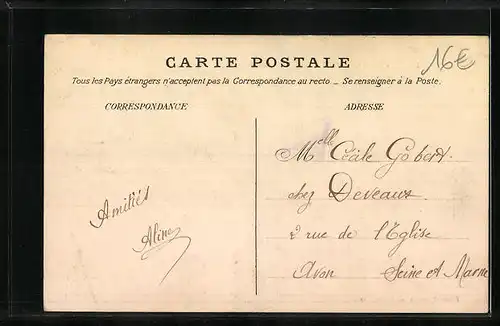 CARTE POSTALE
16€
Tous les Pays étrangers n'acceptent pas la Correspondance au recto. _ Se renseigner à la Poste.
CORRESPONDANCE
ADRESSE
Melle Cécile Gobert.
chez Deveaux
2 rue de l'Eglise
Avon Seine et Marne
Amitiés
Aline